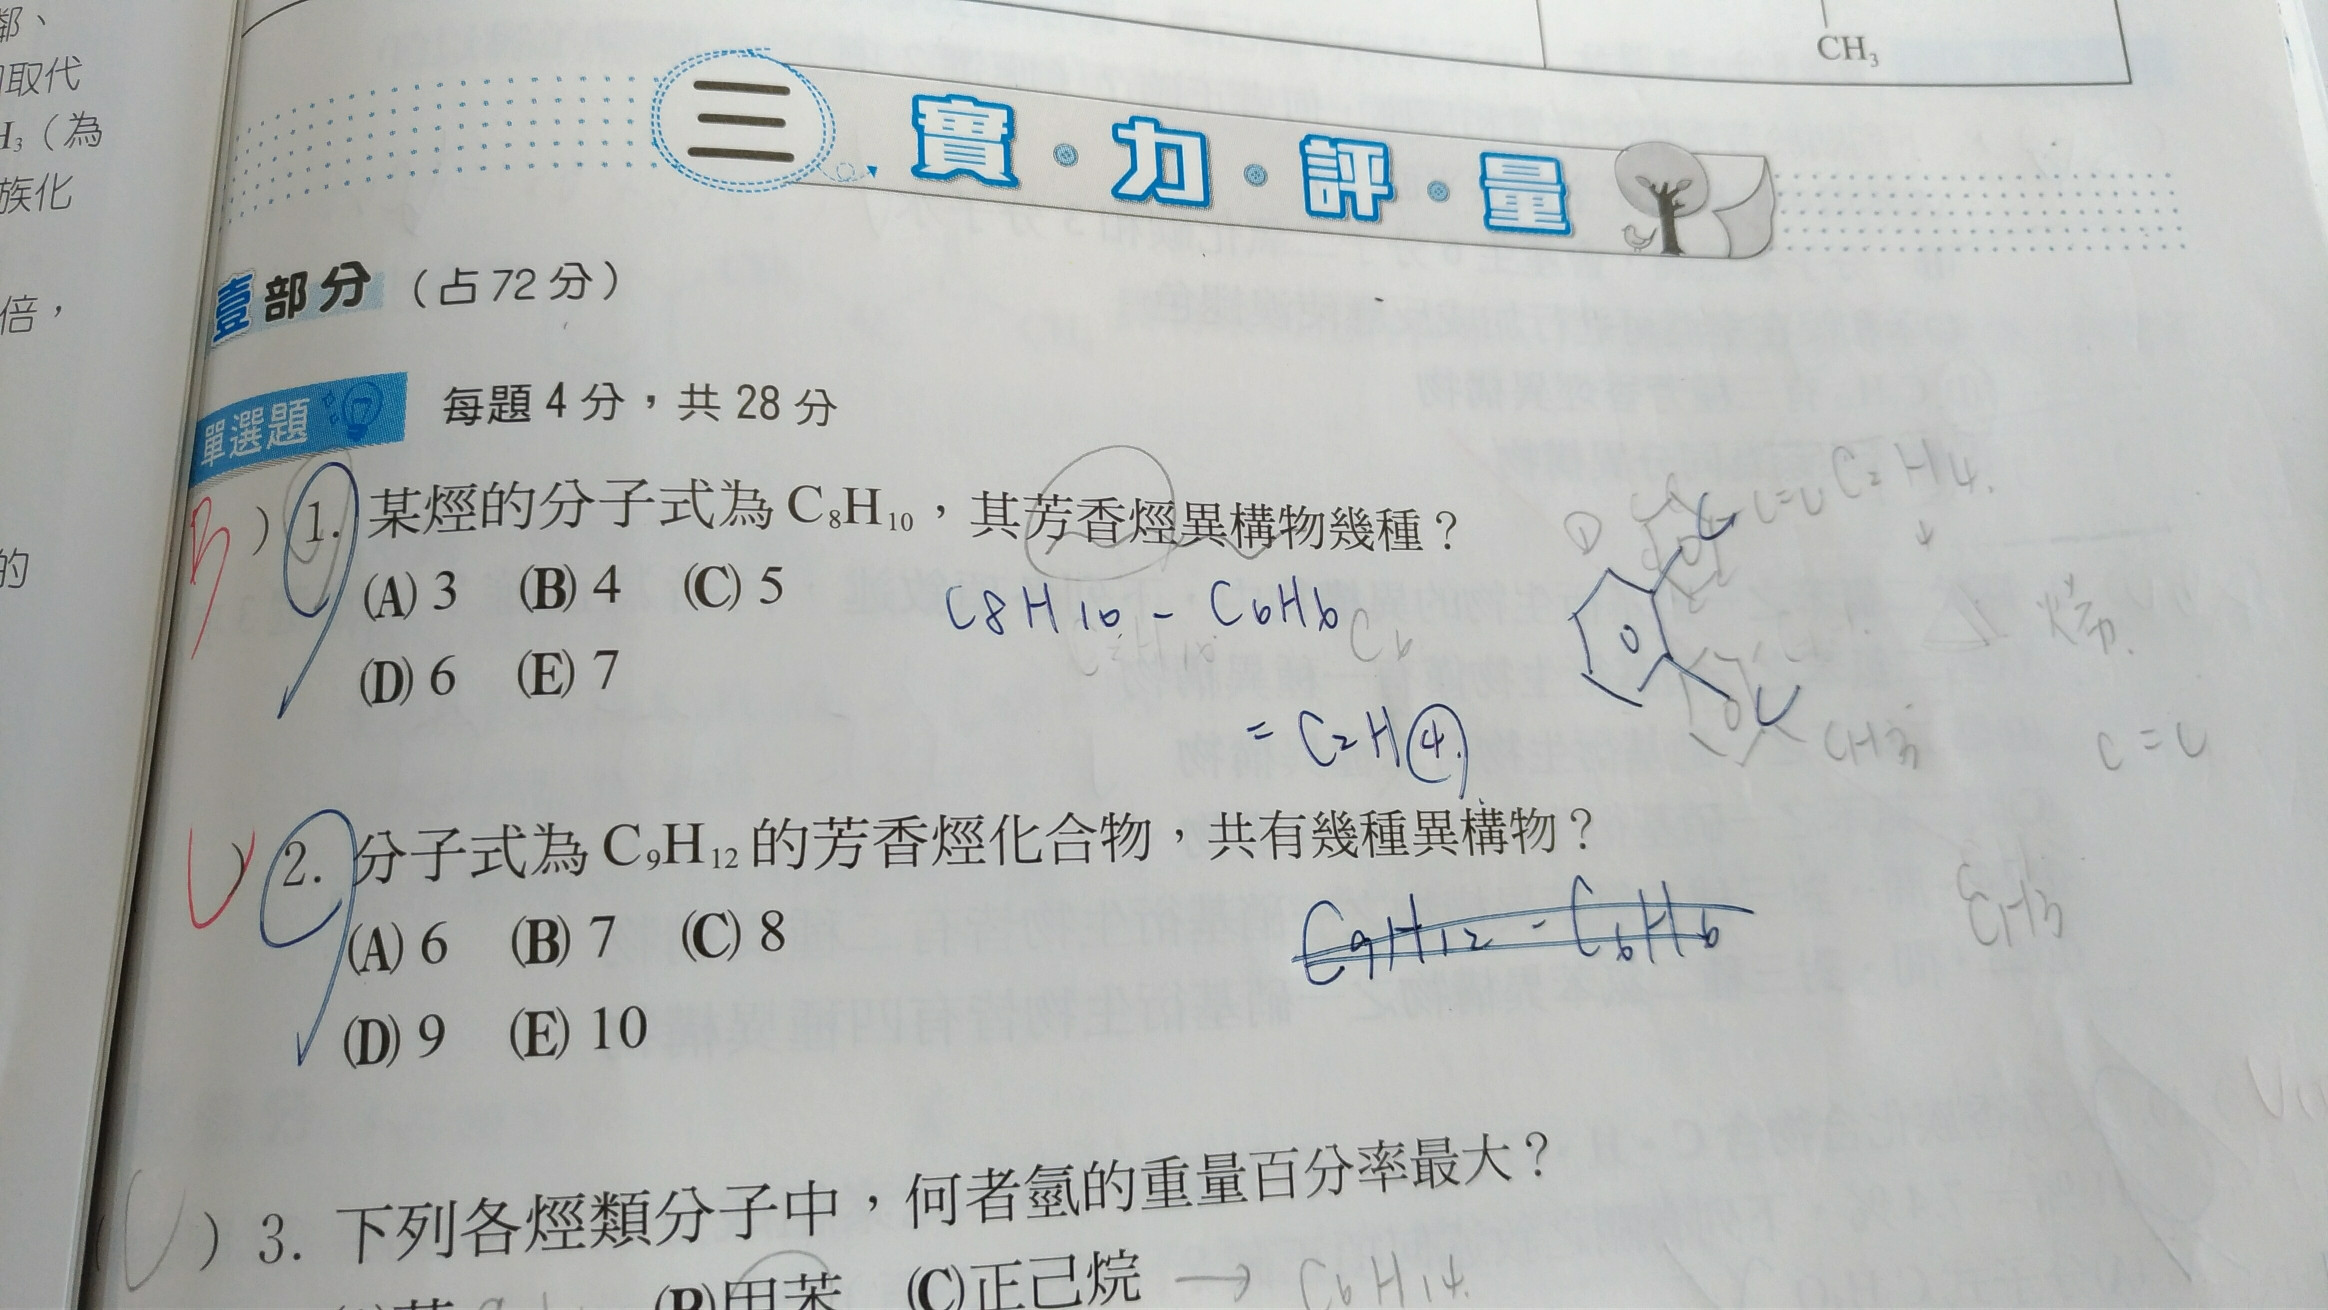 鄰、
取代
H₃（為
族化
倍，
的
CH₃
三 實・力・評・量
壹部分（占72分）
單選題 每題4分，共28分
B ) 1. 某烴的分子式為C₈H₁₀，其芳香烴異構物幾種？
(A) 3 (B) 4 (C) 5
(D) 6 (E) 7
C8H10 - C6H6
= C2H4
① C=C C2H4.
烯.
CH3
C=C
) 2. 分子式為C₉H₁₂的芳香烴化合物，共有幾種異構物？
(A) 6 (B) 7 (C) 8
(D) 9 (E) 10
C9H12 - C6H6
CH3
) 3. 下列各烴類分子中，何者氫的重量百分率最大？
(B)甲苯 (C)正己烷 → C6H14.